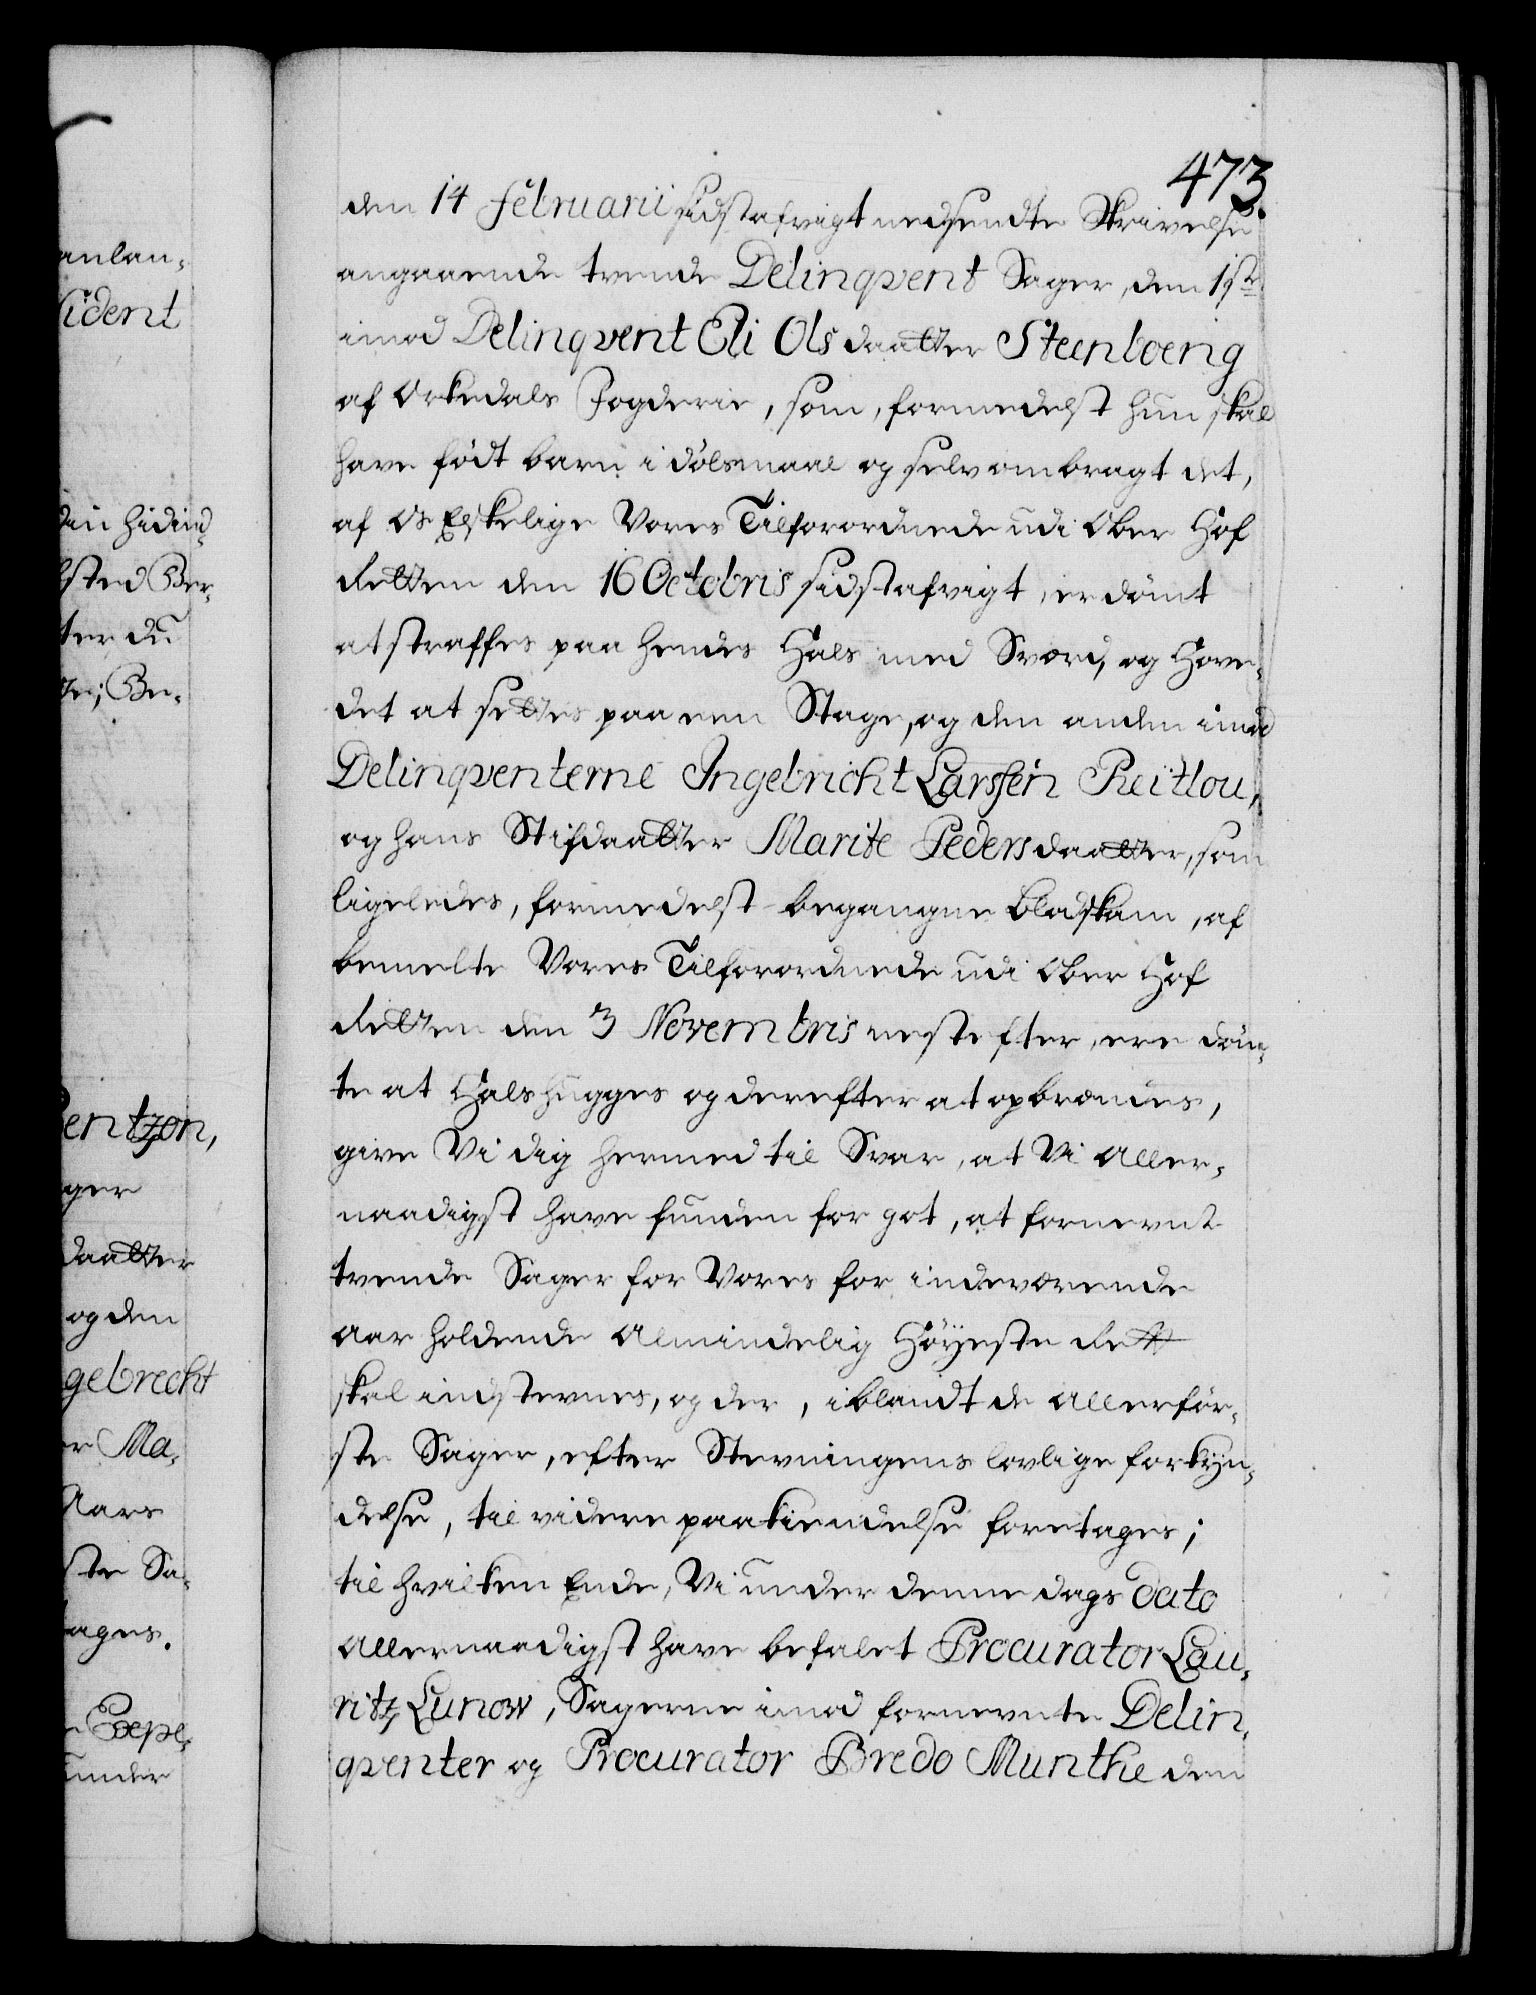 473.
den 14 Februarii sidstafvigt nedsendte Skrivelse
angaaende tvende Delinqvent Sager, den 1ste
imod Delinqvent Eli Olsdaatter Steenboeng
af Orkedals Fogderie, som, formedelst hun skal
have födt barn i dölsmaal og selv ombragt det,
af Os Elskelige Vores Tilforordnede udi Ober Hof
Retten den 16 Octobris sidstafvigt, er dömt
at straffes paa hendes Hals med Sværd, og Hove-
det at settes paa een Stage, og den anden imod
Delinqventerne Ingebricht Larssen Reitlou,
og hans Stifdaatter Marite Pedersdaatter, som
ligeledes, formedelst begangne blodskam, af
bemelte Vores Tilforordnede udi Ober Hof
Retten den 3 Novembris nest efter, ere döm-
te at Halshugges og derefter at opbrændes,
give Vi dig hermed til Svar, at Vi Aller-
naadigst have funden for got, at fornevnt
tvende Sager for Vores for indeværende
Aar holdende Almindelig Höyeste Rett
skal indstevnes, og der, iblandt de Allerför-
ste Sager, efter Stevningens lovlige forkyn-
delse, til videre paakiendelse foretages;
til hvilken Ende, Vi under denne dags dato
Allernaadigst have befalet Procurator Lau-
ritz Lunow, Sagerne imod fornevnte Delin-
qventer og Procurator Bredo Munthe den
anlan-
sident
sted Ber-
ter du
te; Be-
Bentzon,
ger
daatter
og den
gebrecht
er Ma-
Aars
ste Sa-
tages.
Expe-
under